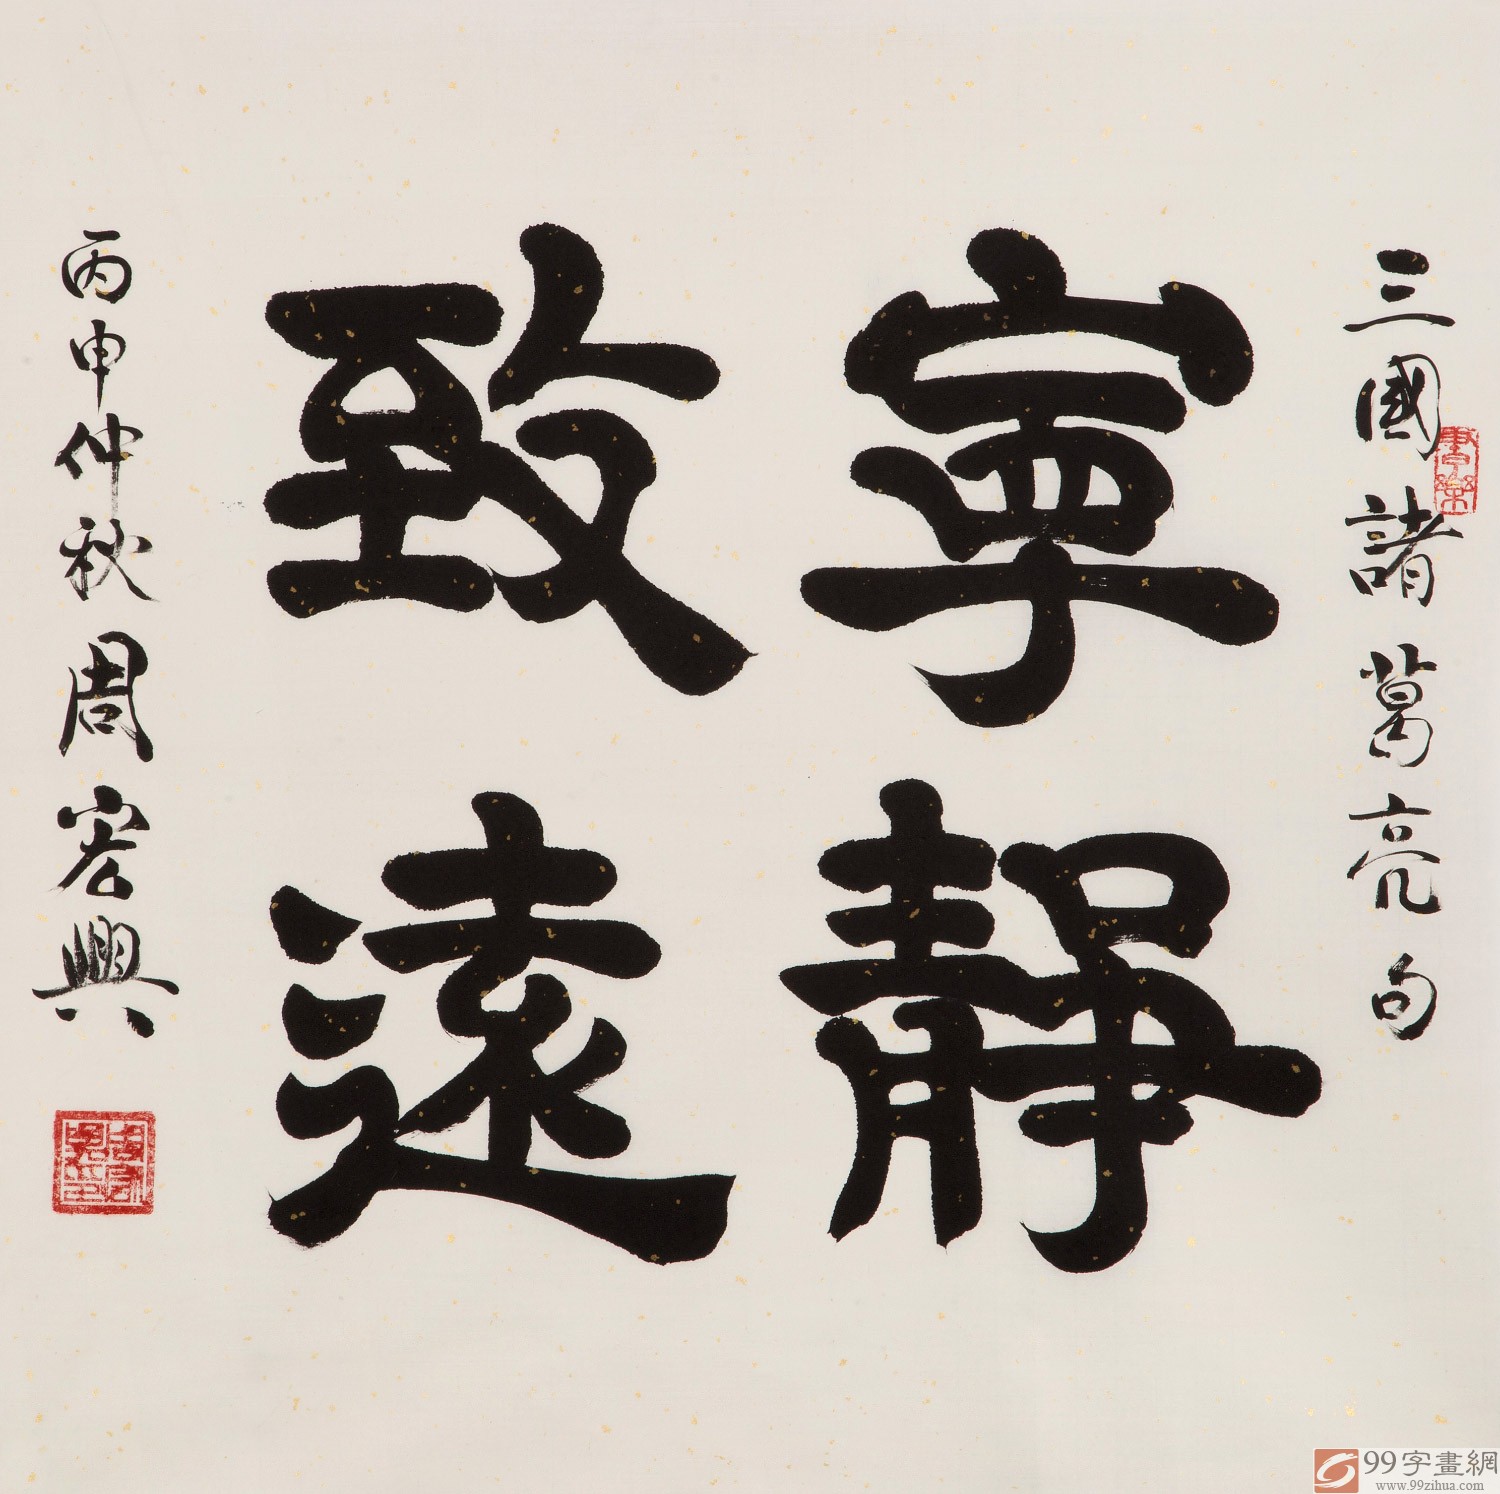 三國諸葛亮句
寧靜
致遠
丙申仲秋周宏興
99字畫網
www.99zihua.com